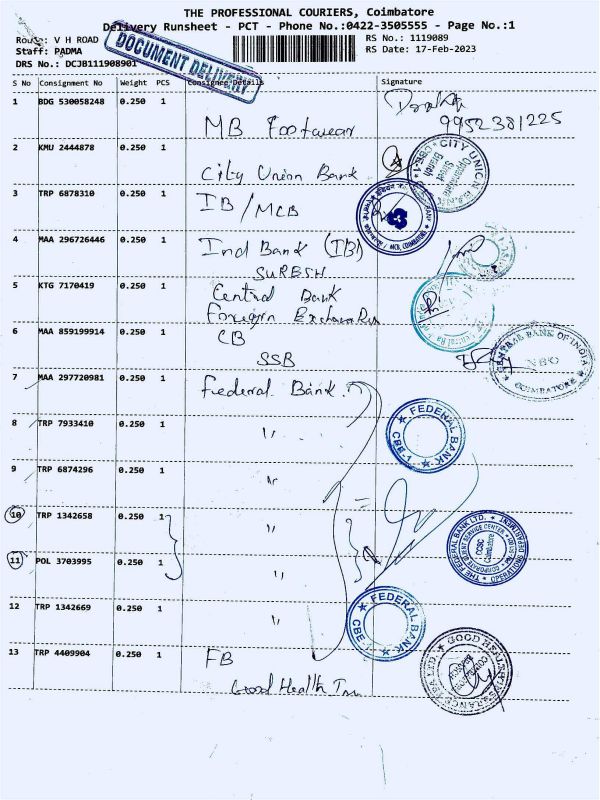 THE PROFESSIONAL COURIERS, Coimbatore
Delivery Runsheet - PCT - Phone No.:0422-3505555 - Page No.:1
Route: V H ROAD
RS No.: 1119089
Staff: PADMA
RS Date: 17-Feb-2023
DRS No.: DCJB111908901
DOCUMENT DELIVERY
S No Consignment No Weight PCS Consignee Details Signature
1 BDG 530058248 0.250 1
MB Footwear
9952381225
2 KMU 2444878 0.250 1
City Union Bank
CITY UNION
CBE-1
3 TRP 6878310 0.250 1
IB/MCB
4 MAA 296726446 0.250 1
Ind Bank (IB)
SURESH
5 KTG 7170419 0.250 1
Central Bank
Foreign
6 MAA 859199914 0.250 1
CB
SSB
CENTRAL BANK OF INDIA
COIMBATORE
7 MAA 297720981 0.250 1
Federal Bank
8 TRP 7933410 0.250 1
"
FEDERAL BANK
CBE-1
9 TRP 6874296 0.250 1
"
10 TRP 1342658 0.250 1
"
THE FEDERAL BANK LTD.
CORPORATE CLIENT SERVICE CENTER
OPERATIONS DEPARTMENT
CCSC
Coimbatore
11 POL 3703995 0.250 1
"
12 TRP 1342669 0.250 1
"
FEDERAL BANK
CBE
13 TRP 4409904 0.250 1
FB
Good Health
GOOD HEALTH INSURANCE TPA LTD